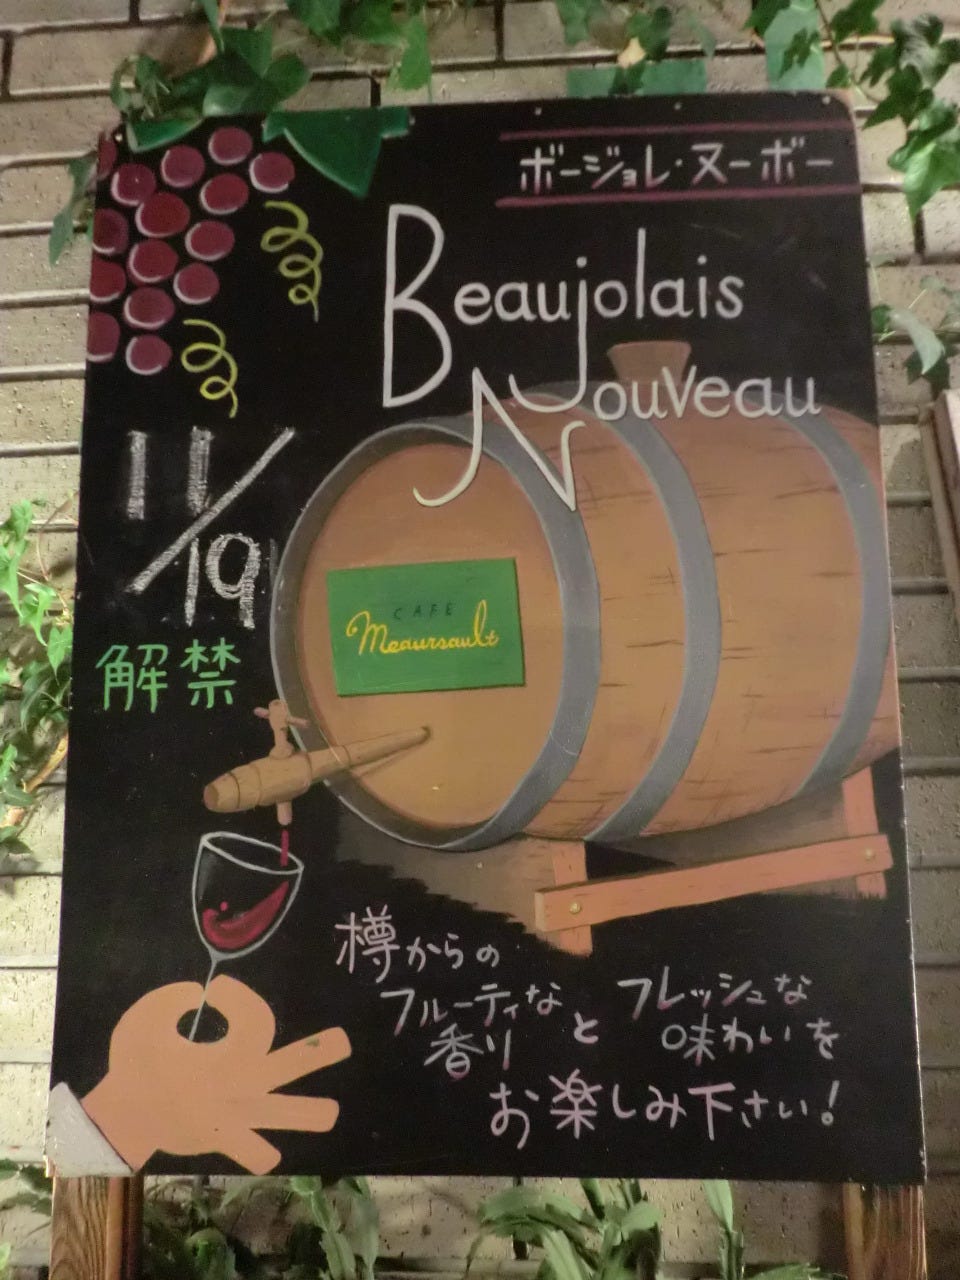 ボージョレ・ヌーボー
Beaujolais
Nouveau
11/19
解禁
CAFE
Meaursault
樽からの
フルーティな
香り
と
フレッシュな
味わいを
お楽しみ下さい!